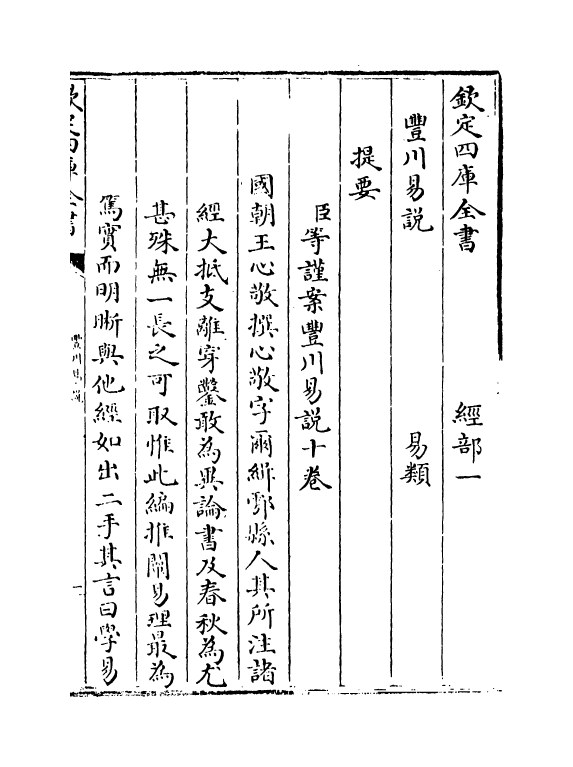 欽定四庫全書 經部一
豐川易說 易類
提要
臣等謹案豐川易說十卷
國朝王心敬撰心敬字爾緝鄠縣人其所注諸
經大抵支離穿鑿敢為異論書及春秋為尤
甚殊無一長之可取惟此編推闡易理最為
篤實而明晰與他經如出二手其言曰學易
欽定四庫全書
豐川易說
一